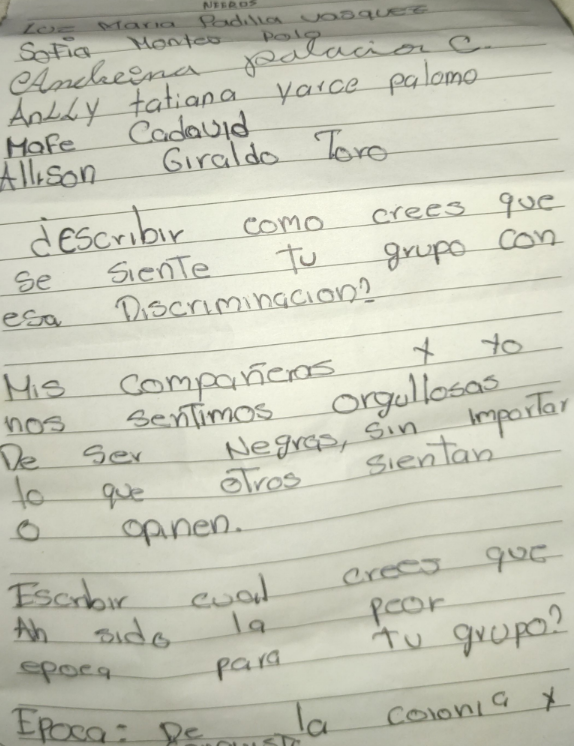 NEGROS
Zoe Maria Padilla vasquez
Sofia Montes Polo
Andreina palacior C.
AnLLy tatiana yarce palomo
Mafe Cadavid
Allison Giraldo Toro
describir como crees que
se siente tu grupo con
esa Discriminacion?
Mis compañeras y yo
nos sentimos orgullosas
De ser Negras, sin importar
lo que otros sientan
o opinen.
Escrbir cual crees que
Ah sido la peor
epoca para tu grupo?
Epoca: De la colonia y